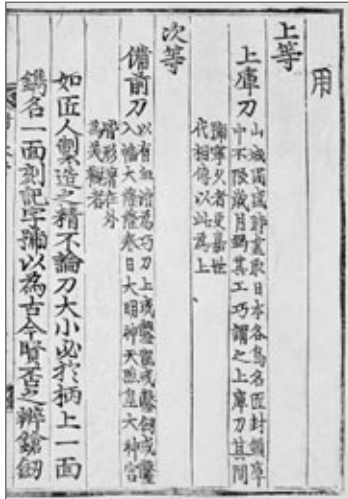 用
上等
上庫刀
山城國盛時盡取日本各島名匠封鎖庫
中不限歲月竭其工巧謂之上庫刀其間
號寧久者更嘉世
代相傳以此為上
次等
備前刀
以有血漕為巧刀上或鑿龍或鑿劍或鑿
八幡大菩薩春日大明神天照皇大神宮
皆形著在外
為美觀者
如匠人製造之精不論刀大小必於柄上一面
鐫名一面刻記字號以為古今賢否之辨鎗劍